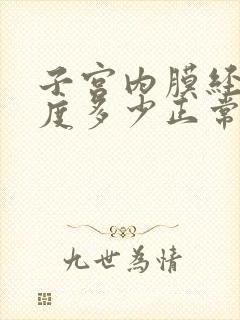 子宫内膜经
度多少正常
九世為情